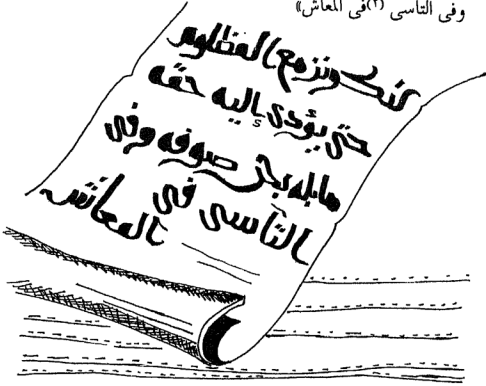 وفى التآسى (٢) فى المعاش»
لنكونن مع المظلوم
حتى يؤدى إليه حقه
ما بل بحر صوفه وفى
التآسى فى
المعاش